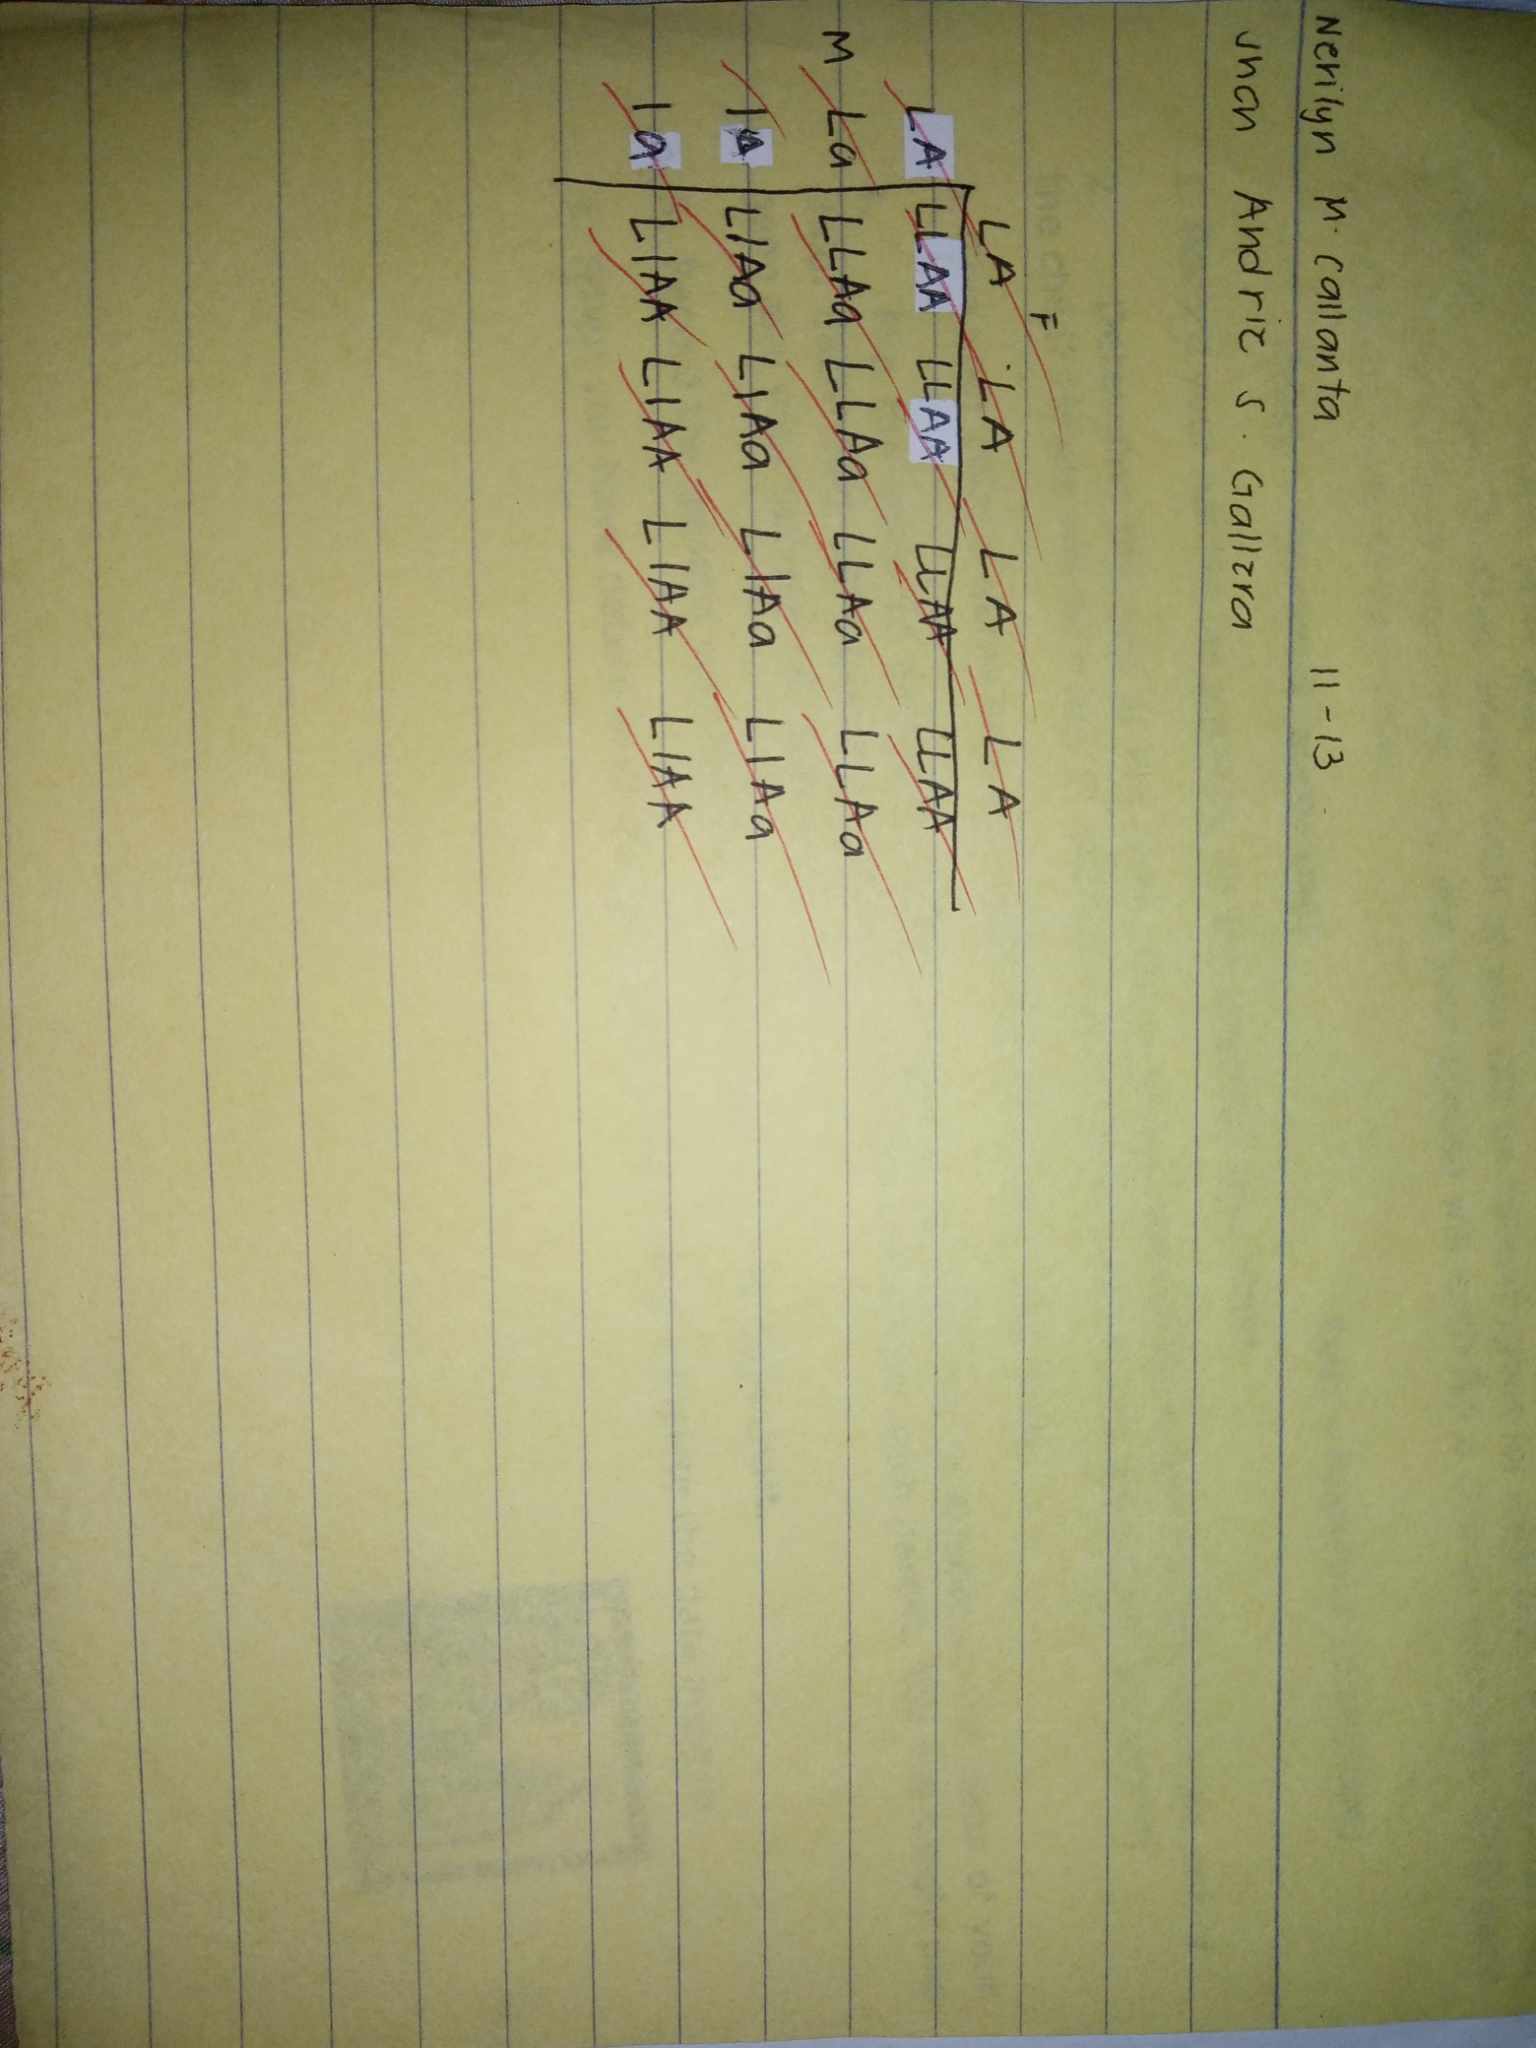 Nerilyn M. Callanta 11-13
Jhon Andrie S. Gallera
F
LA LA LA LA
LA LLAA LLAA LLAA LLAA
M La LLAa LLAa LLAa LLAa
lA LlAa LlAa LlAa LlAa
la LlAA LlAA LlAA LlAA